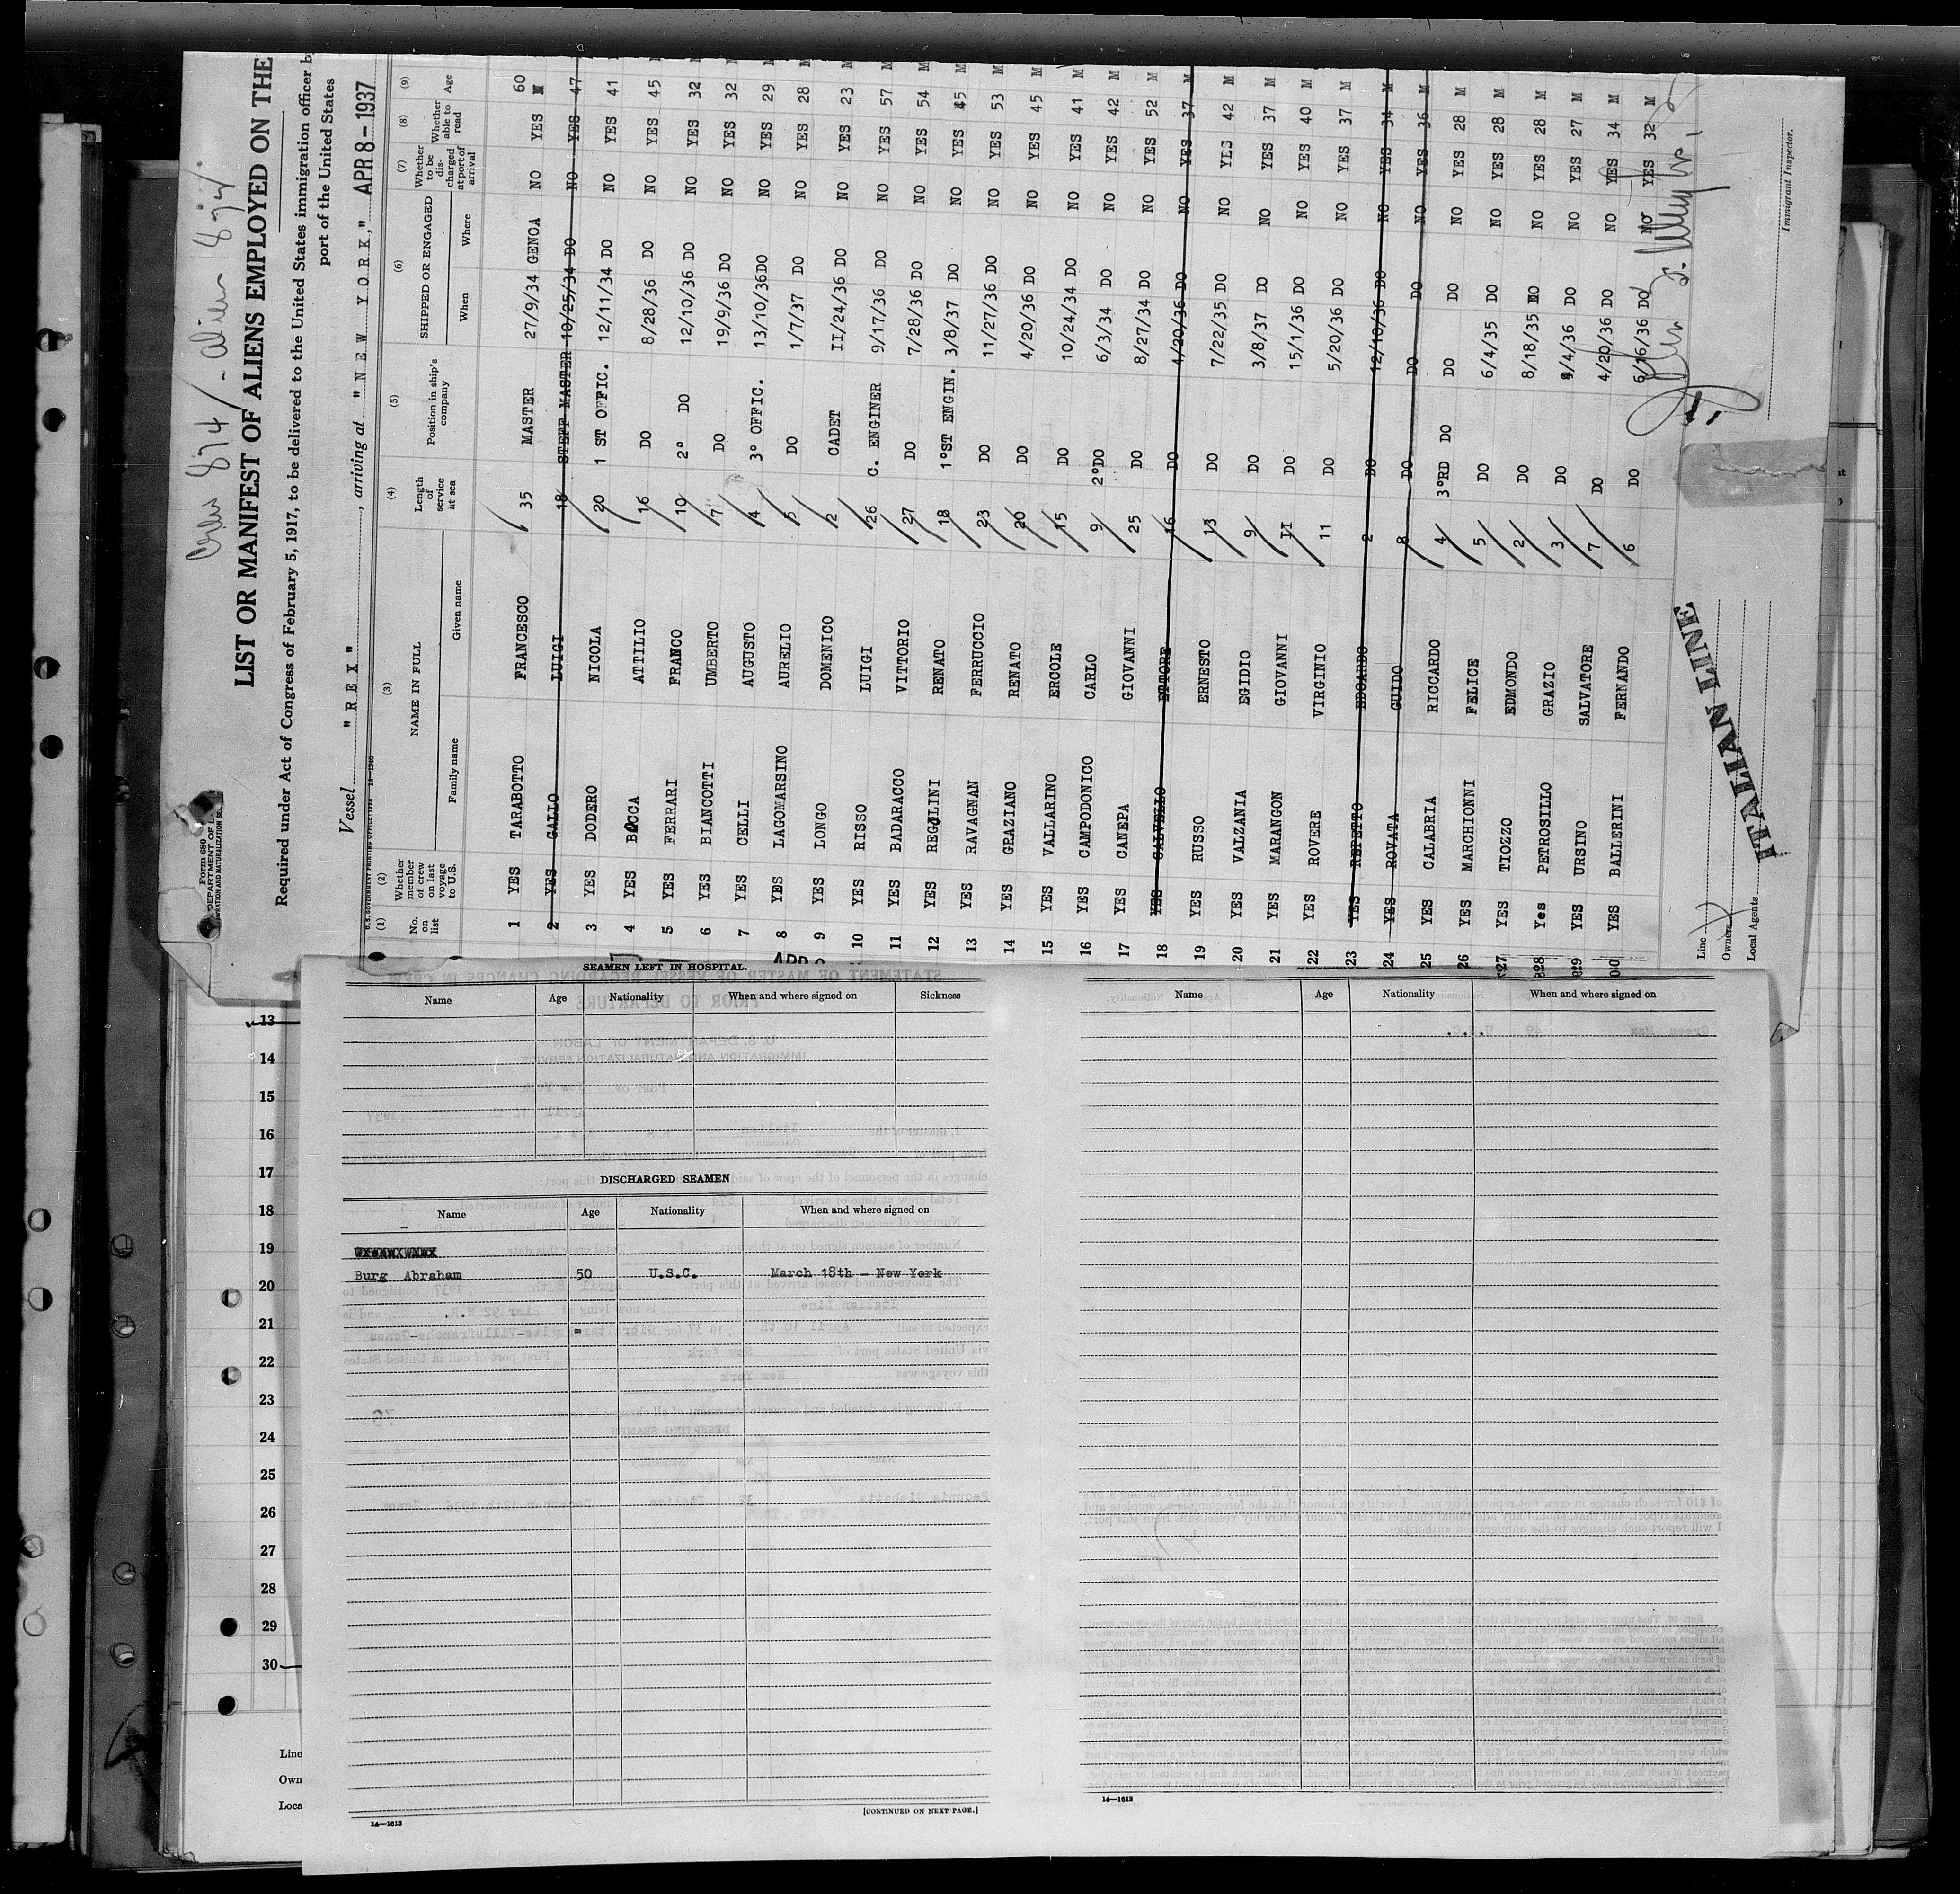 Crew 874 / - alien
LIST OR MANIFEST OF ALIENS EMPLOYED ON THE
Required under Act of Congress of February 5, 1917, to be delivered to the United States immigration officer b
port of the United States
Vessel "REX", arriving at "NEW YORK," APR 8 - 1937
Form 680
(1) (2) (3) (4) (5) (6) (7) (8) (9)
No. on list Whether member of crew on last voyage to U.S. NAME IN FULL Length of service at sea Position in ship's company SHIPPED OR ENGAGED Whether to be discharged at port of arrival Whether able to read Age
Family name Given name When Where
1 YES TARABOTTO FRANCESCO 35 MASTER 27/9/34 GENOA NO YES 60 M
2 YES GALLO LUIGI 18 STEFF MASTER 10/25/34 DO NO YES 47
3 YES DODERO NICOLA 20 1 ST OFFIC. 12/11/34 DO NO YES 41
4 YES BOCCA ATTILIO 16 DO 8/28/36 DO NO YES 45
5 YES FERRARI FRANCO 10 2° DO 12/10/36 DO NO YES 32
6 YES BIANCOTTI UMBERTO 7 DO 19/9/36 DO NO YES 32
7 YES CELLI AUGUSTO 4 3° OFFIC. 13/10/36 DO NO YES 29
8 YES LAGOMARSINO AURELIO 5 DO 1/7/37 DO NO YES 28 M
9 YES LONGO DOMENICO 2 CADET II/24/36 DO NO YES 23 M
10 YES RISSO LUIGI 26 C. ENGINER 9/17/36 DO NO YES 57 M
11 YES BADARACCO VITTORIO 27 DO 7/28/36 DO NO YES 54 M
12 YES REGOLINI RENATO 18 1°ST ENGIN. 3/8/37 DO NO YES 45 M
13 YES RAVAGNAN FERRUCCIO 23 DO 11/27/36 DO NO YES 53 M
14 YES GRAZIANO RENATO 20 DO 4/20/36 DO NO YES 45 M
15 YES VALLARINO ERCOLE 15 DO 10/24/34 DO NO YES 41 M
16 YES CAMPODONICO CARLO 9 2°DO 6/3/34 DO NO YES 42 M
17 YES CANEPA GIOVANNI 25 DO 8/27/34 DO NO YES 52 M
18 YES CALVELLO ETTORE 16 DO 4/20/36 DO NO YES 37 M
19 YES RUSSO ERNESTO 13 DO 7/22/35 DO NO YES 42 M
20 YES VALZANIA EGIDIO 9 DO 3/8/37 DO NO YES 37 M
21 YES MARANGON GIOVANNI 11 DO 15/1/36 DO NO YES 40 M
22 YES ROVERE VIRGINIO 11 DO 5/20/36 DO NO YES 37 M
23 YES REPETTO EDOARDO 2 DO 12/10/36 DO NO YES 34 M
24 YES ROVATA GUIDO 8 DO DO DO NO YES 36 M
25 YES CALABRIA RICCARDO 4 3°RD DO DO DO NO YES 28 M
26 YES MARCHIONNI FELICE 5 DO 6/4/35 DO NO YES 28 M
27 YES TIOZZO EDMONDO 2 DO 8/18/35 DO NO YES 28 M
28 Yes PETROSILLO GRAZIO 3 DO 4/4/36 DO NO YES 27 M
29 YES URSINO SALVATORE 7 DO 4/20/36 DO NO YES 34 M
YES BALLERINI FERNANDO 6 DO 6/16/36 DO NO YES 32 M
Line
Owners
Local Agents
ITALIAN LINE
Immigrant Inspector.
SEAMEN LEFT IN HOSPITAL.
Name Age Nationality When and where signed on Sickness
DISCHARGED SEAMEN
Name Age Nationality When and where signed on
Burg Abraham 50 U.S.C. March 18th - New York
[CONTINUED ON NEXT PAGE.]
14—1613
Name Age Nationality When and where signed on
14—1613
13
14
15
16
17
18
19
20
21
22
23
24
25
26
27
28
29
30
Line
Own
Loca